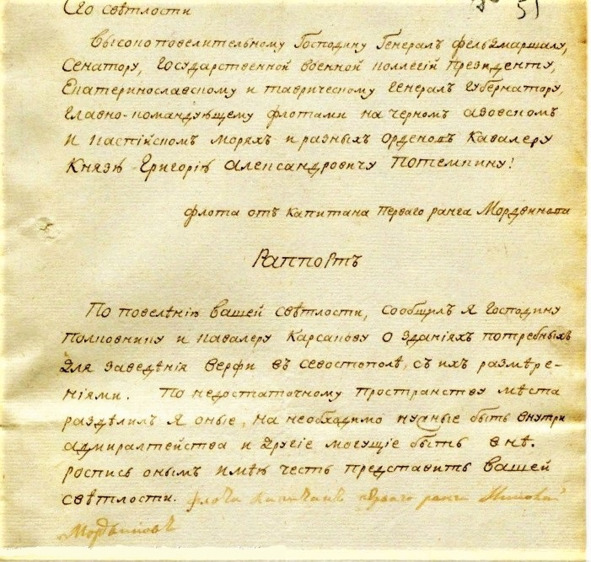 Его свѣтлости
51
Высоповелительному Господину Генералъ фельдмаршалу,
Сенатору, Государственной военной коллегіи президенту,
Екатеринославскому и таврическому генералъ губернатору,
главно-командующему флотами на черномъ азовскомъ
и каспійскомъ моряхъ и разныхъ орденовъ кавалеру
Князь Григорію александровичу потемкину!
флота отъ капитана перваго ранга Мордвинова
Раппортъ
По повелѣнію вашей свѣтлости, сообщилъ я господину
полковнику и кавалеру Карсакову о зданіяхъ потребныхъ
для заведѣнія верфи въ севостополѣ, съ ихъ размѣре-
ніями. По недостаточному пространству мѣста
раздѣлилъ я оные, на необходимо нужные быть внутри
адмиралтейства и другіе могущіе быть внѣ.
роспись онымъ имѣю честь представить вашей
свѣтлости. флота капитанъ перваго ранга Николай
Мордвиновъ